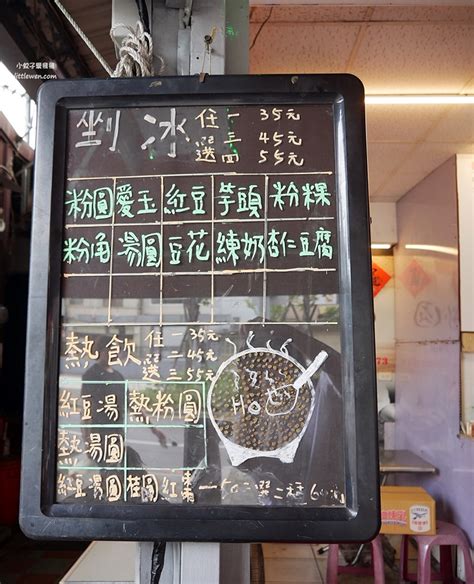 小蚊子愛音羅
littlewen.com
剉冰 任選 一 35元
三 45元
四 55元
粉圓 愛玉 紅豆 芋頭 粉粿
粉角 湯圓 豆花 練奶 杏仁豆腐
熱飲 任選 一 35元
二 45元
三 55元
紅豆湯 熱粉圓
熱湯圓
Ho
紅豆湯圓 桂圓紅棗
選二種